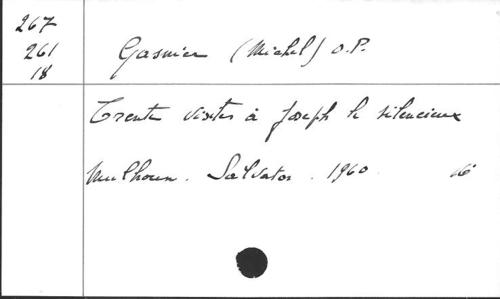 267
261
18
Gasnier (Michel) O.P.
Trente visites à Joseph le silencieux
Mulhouse. Salvator. 1960. 16°